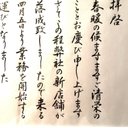 拝啓
春暖の候ますますご清栄の
こととお慶び申し上げます
さてこの程弊社の新店舗が
落成致しましたので来る
四月五日より業務を開始する
運びとなりました